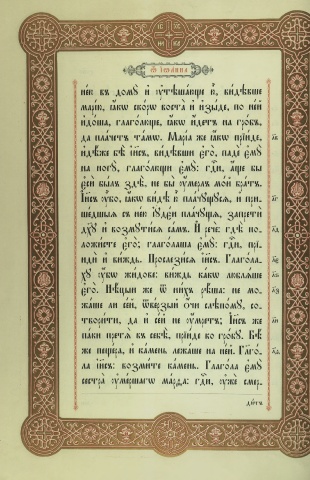 Ѿ Іѡа́нна
не́ю въ домꙋ̀ и҆ ᲂу҆тѣша́юще ю҆̀, ви́дѣвше
марі́ю, ꙗ҆́кѡ ско́рѡ воста̀ и҆ и҆зы́де, по не́й
и҆до́ша, глаго́люще, ꙗ҆́кѡ и҆́детъ на гро́бъ,
да пла́четъ та́мѡ. Марі́а же ꙗ҆́кѡ прїи́де,
и҆дѣ́же бѣ̀ і҆и҃съ, ви́дѣвши є҆го̀, падѐ є҆мꙋ̀
на но́гꙋ, глаго́лющи є҆мꙋ̀: гд҃и, а҆́ще бы
є҆сѝ бы́лъ здѣ̀, не бы̀ ᲂу҆́мерлъ мо́й бра́тъ.
І҆и҃съ ᲂу҆̀бо, ꙗ҆́кѡ ви́дѣ ю҆̀ пла́чꙋщꙋсѧ и҆ при-
ше́дшыѧ съ не́ю і҆ꙋдє́и пла́чꙋщѧ, запретѝ
дх҃ꙋ и҆ возмꙋти́сѧ са́мъ. И҆ речѐ: гдѣ̀ по-
ложи́сте є҆го̀; глаго́лаша є҆мꙋ̀: гд҃и, прі-
идѝ и҆ ви́ждь. Прослези́сѧ і҆и҃съ. Глаго́ла-
хꙋ ᲂу҆́бѡ жи́дове: ви́ждь ка́кѡ люблѧ́ше
є҆го̀. Нѣ́цыи же ѿ ни́хъ рѣ́ша: не мо-
жа́ше ли се́й, ѿве́рзый ѻ҆́чи слѣпо́мꙋ, со-
твори́ти, да и҆ се́й не ᲂу҆́мретъ; І҆и҃съ же
па́ки претѧ̀ въ себѣ̀, прїи́де ко гро́бꙋ. Бѣ́
же пеще́ра, и҆ ка́мень лежа́ше на не́й. Глаго́-
ла і҆и҃съ: возми́те ка́мень. Глаго́ла є҆мꙋ̀
сестра̀ ᲂу҆ме́ршагѡ ма́рѳа: гд҃и, ᲂу҆жѐ смер-
ди́тъ